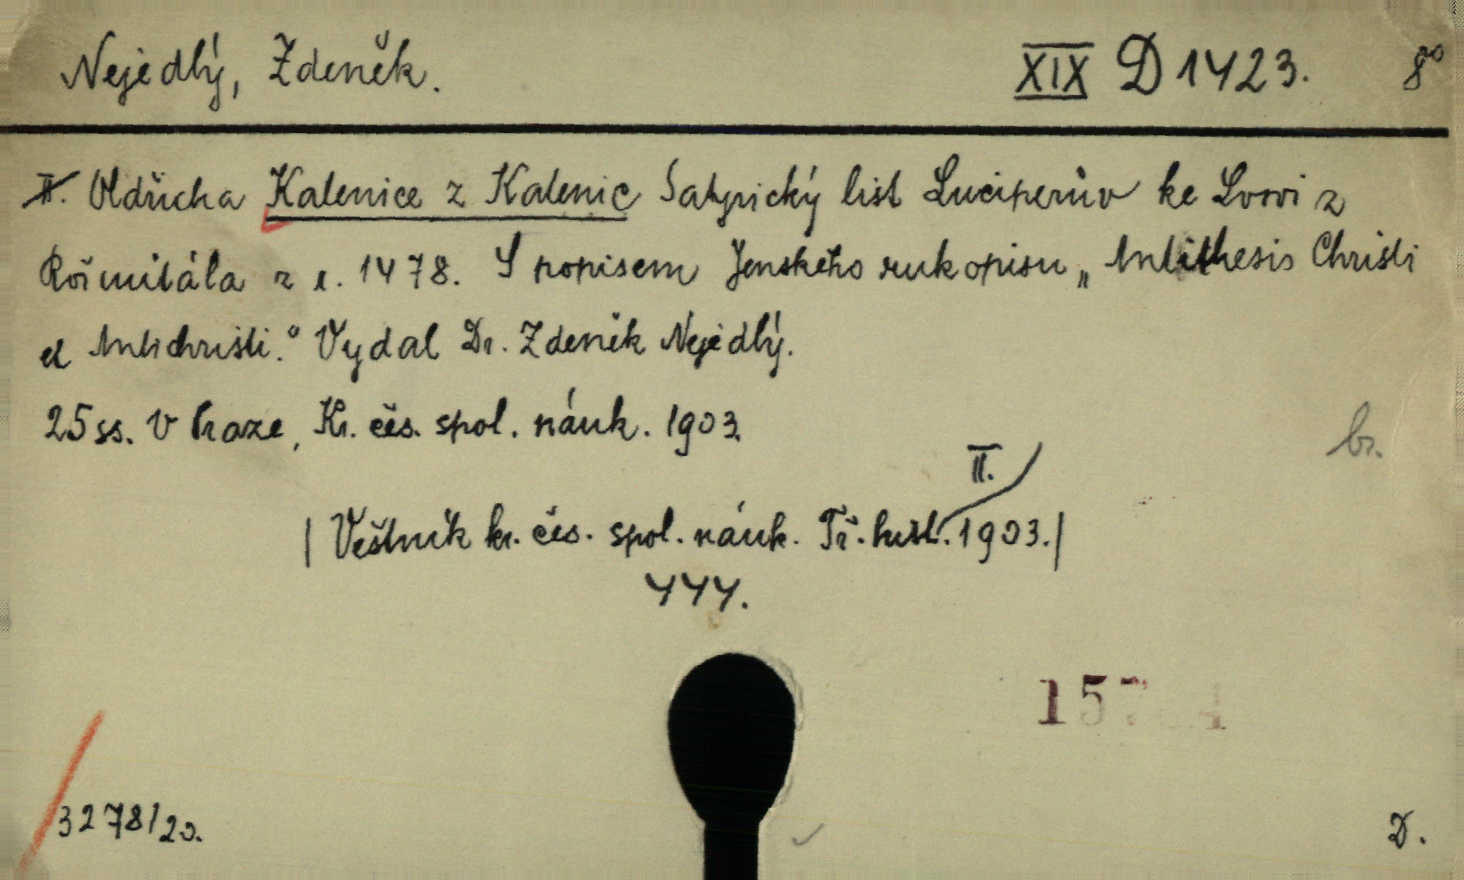 Nejedlý, Zdeněk. XIX D 1423. 8°
II. Oldřicha Kalenice z Kalenic Satyrický list Luciperův ke Lvovi z
Rožmitála z r. 1478. S popisem Jenského rukopisu „Antithesis Christi
et Antichristi." Vydal Dr. Zdeněk Nejedlý.
25 ss. V Praze, Kr. čes. spol. náuk. 1903.
br.
II.
| Věstník kr. čes. spol. náuk. Tř. hist. 1903. |
444.
157
3278/20.
D.